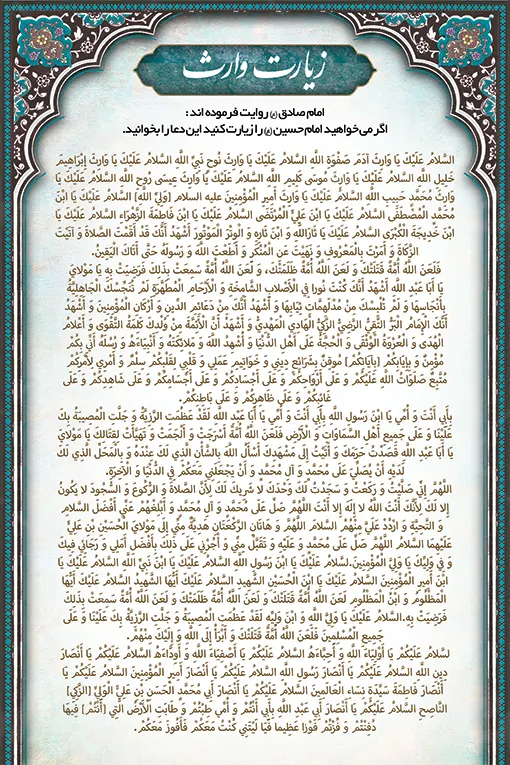 زیارت وارث
امام صادق (ع) روایت فرموده اند :
اگر می خواهید امام حسین (ع) را زیارت کنید این دعا را بخوانید.
السَّلامُ عَلَيْكَ يَا وَارِثَ آدَمَ صَفْوَةِ اللَّهِ السَّلامُ عَلَيْكَ يَا وَارِثَ نُوحٍ نَبِيِّ اللَّهِ السَّلامُ عَلَيْكَ يَا وَارِثَ إِبْرَاهِيمَ
خَلِيلِ اللَّهِ السَّلامُ عَلَيْكَ يَا وَارِثَ مُوسَى كَلِيمِ اللَّهِ السَّلامُ عَلَيْكَ يَا وَارِثَ عِيسَى رُوحِ اللَّهِ السَّلامُ عَلَيْكَ يَا
وَارِثَ مُحَمَّدٍ حَبِيبِ اللَّهِ السَّلامُ عَلَيْكَ يَا وَارِثَ أَمِيرِ الْمُؤْمِنِينَ عليه السلام [وَلِيِّ اللَّهِ] السَّلامُ عَلَيْكَ يَا ابْنَ
مُحَمَّدٍ الْمُصْطَفَى السَّلامُ عَلَيْكَ يَا ابْنَ عَلِيٍّ الْمُرْتَضَى السَّلامُ عَلَيْكَ يَا ابْنَ فَاطِمَةَ الزَّهْرَاءِ السَّلامُ عَلَيْكَ يَا
ابْنَ خَدِيجَةَ الْكُبْرَى السَّلامُ عَلَيْكَ يَا ثَارَاللَّهِ وَ ابْنَ ثَارِهِ وَ الْوِتْرَ الْمَوْتُورَ أَشْهَدُ أَنَّكَ قَدْ أَقَمْتَ الصَّلاةَ وَ آتَيْتَ
الزَّكَاةَ وَ أَمَرْتَ بِالْمَعْرُوفِ وَ نَهَيْتَ عَنِ الْمُنْكَرِ وَ أَطَعْتَ اللَّهَ وَ رَسُولَهُ حَتَّى أَتَاكَ الْيَقِينُ.
فَلَعَنَ اللَّهُ أُمَّةً قَتَلَتْكَ وَ لَعَنَ اللَّهُ أُمَّةً ظَلَمَتْكَ، وَ لَعَنَ اللَّهُ أُمَّةً سَمِعَتْ بِذَلِكَ فَرَضِيَتْ بِهِ يَا مَوْلايَ
يَا أَبَا عَبْدِ اللَّهِ أَشْهَدُ أَنَّكَ كُنْتَ نُورا فِي الْأَصْلابِ الشَّامِخَةِ وَ الْأَرْحَامِ الْمُطَهَّرَةِ لَمْ تُنَجِّسْكَ الْجَاهِلِيَّةُ
بِأَنْجَاسِهَا وَ لَمْ تُلْبِسْكَ مِنْ مُدْلَهِمَّاتِ ثِيَابِهَا وَ أَشْهَدُ أَنَّكَ مِنْ دَعَائِمِ الدِّينِ وَ أَرْكَانِ الْمُؤْمِنِينَ وَ أَشْهَدُ
أَنَّكَ الْإِمَامُ الْبَرُّ التَّقِيُّ الرَّضِيُّ الزَّكِيُّ الْهَادِي الْمَهْدِيُّ وَ أَشْهَدُ أَنَّ الْأَئِمَّةَ مِنْ وُلْدِكَ كَلِمَةُ التَّقْوَى وَ أَعْلامُ
الْهُدَى وَ الْعُرْوَةُ الْوُثْقَى وَ الْحُجَّةُ عَلَى أَهْلِ الدُّنْيَا وَ أُشْهِدُ اللَّهَ وَ مَلائِكَتَهُ وَ أَنْبِيَاءَهُ وَ رُسُلَهُ أَنِّي بِكُمْ
مُؤْمِنٌ وَ بِإِيَابِكُمْ [بِآيَاتِكُمْ] مُوقِنٌ بِشَرَائِعِ دِينِي وَ خَوَاتِيمِ عَمَلِي وَ قَلْبِي لِقَلْبِكُمْ سِلْمٌ وَ أَمْرِي لِأَمْرِكُمْ
مُتَّبِعٌ صَلَوَاتُ اللَّهِ عَلَيْكُمْ وَ عَلَى أَرْوَاحِكُمْ وَ عَلَى أَجْسَادِكُمْ وَ عَلَى أَجْسَامِكُمْ وَ عَلَى شَاهِدِكُمْ وَ عَلَى
غَائِبِكُمْ وَ عَلَى ظَاهِرِكُمْ وَ عَلَى بَاطِنِكُمْ.
بِأَبِي أَنْتَ وَ أُمِّي يَا ابْنَ رَسُولِ اللَّهِ بِأَبِي أَنْتَ وَ أُمِّي يَا أَبَا عَبْدِ اللَّهِ لَقَدْ عَظُمَتِ الرَّزِيَّةُ وَ جَلَّتِ الْمُصِيبَةُ بِكَ
عَلَيْنَا وَ عَلَى جَمِيعِ أَهْلِ السَّمَاوَاتِ وَ الْأَرْضِ فَلَعَنَ اللَّهُ أُمَّةً أَسْرَجَتْ وَ أَلْجَمَتْ وَ تَهَيَّأَتْ لِقِتَالِكَ يَا مَوْلايَ
يَا أَبَا عَبْدِ اللَّهِ قَصَدْتُ حَرَمَكَ وَ أَتَيْتُ إِلَى مَشْهَدِكَ أَسْأَلُ اللَّهَ بِالشَّأْنِ الَّذِي لَكَ عِنْدَهُ وَ بِالْمَحَلِّ الَّذِي لَكَ
لَدَيْهِ أَنْ يُصَلِّيَ عَلَى مُحَمَّدٍ وَ آلِ مُحَمَّدٍ وَ أَنْ يَجْعَلَنِي مَعَكُمْ فِي الدُّنْيَا وَ الْآخِرَةِ.
اللَّهُمَّ إِنِّي صَلَّيْتُ وَ رَكَعْتُ وَ سَجَدْتُ لَكَ وَحْدَكَ لا شَرِيكَ لَكَ لِأَنَّ الصَّلاةَ وَ الرُّكُوعَ وَ السُّجُودَ لا يَكُونُ
إِلا لَكَ لِأَنَّكَ أَنْتَ اللَّهُ لا إِلَهَ إِلا أَنْتَ اللَّهُمَّ صَلِّ عَلَى مُحَمَّدٍ وَ آلِ مُحَمَّدٍ وَ أَبْلِغْهُمْ عَنِّي أَفْضَلَ السَّلامِ
وَ التَّحِيَّةِ وَ ارْدُدْ عَلَيَّ مِنْهُمُ السَّلامَ اللَّهُمَّ وَ هَاتَانِ الرَّكْعَتَانِ هَدِيَّةٌ مِنِّي إِلَى مَوْلايَ الْحُسَيْنِ بْنِ عَلِيٍّ
عَلَيْهِمَا السَّلامُ اللَّهُمَّ صَلِّ عَلَى مُحَمَّدٍ وَ عَلَيْهِ وَ تَقَبَّلْ مِنِّي وَ أْجُرْنِي عَلَى ذَلِكَ بِأَفْضَلِ أَمَلِي وَ رَجَائِي فِيكَ
وَ فِي وَلِيِّكَ يَا وَلِيَّ الْمُؤْمِنِينَ.السَّلامُ عَلَيْكَ يَا ابْنَ رَسُولِ اللَّهِ السَّلامُ عَلَيْكَ يَا ابْنَ نَبِيِّ اللَّهِ السَّلامُ عَلَيْكَ يَا
ابْنَ أَمِيرِ الْمُؤْمِنِينَ السَّلامُ عَلَيْكَ يَا ابْنَ الْحُسَيْنِ الشَّهِيدِ السَّلامُ عَلَيْكَ أَيُّهَا الشَّهِيدُ السَّلامُ عَلَيْكَ أَيُّهَا
الْمَظْلُومُ وَ ابْنُ الْمَظْلُومِ لَعَنَ اللَّهُ أُمَّةً قَتَلَتْكَ وَ لَعَنَ اللَّهُ أُمَّةً ظَلَمَتْكَ وَ لَعَنَ اللَّهُ أُمَّةً سَمِعَتْ بِذَلِكَ
فَرَضِيَتْ بِهِ.السَّلامُ عَلَيْكَ يَا وَلِيَّ اللَّهِ وَ ابْنَ وَلِيِّهِ لَقَدْ عَظُمَتِ الْمُصِيبَةُ وَ جَلَّتِ الرَّزِيَّةُ بِكَ عَلَيْنَا وَ عَلَى
جَمِيعِ الْمُسْلِمِينَ فَلَعَنَ اللَّهُ أُمَّةً قَتَلَتْكَ وَ أَبْرَأُ إِلَى اللَّهِ وَ إِلَيْكَ مِنْهُمْ.
لسَّلامُ عَلَيْكُمْ يَا أَوْلِيَاءَ اللَّهِ وَ أَحِبَّاءَهُ السَّلامُ عَلَيْكُمْ يَا أَصْفِيَاءَ اللَّهِ وَ أَوِدَّاءَهُ السَّلامُ عَلَيْكُمْ يَا أَنْصَارَ
دِينِ اللَّهِ السَّلامُ عَلَيْكُمْ يَا أَنْصَارَ رَسُولِ اللَّهِ السَّلامُ عَلَيْكُمْ يَا أَنْصَارَ أَمِيرِ الْمُؤْمِنِينَ السَّلامُ عَلَيْكُمْ يَا
أَنْصَارَ فَاطِمَةَ سَيِّدَةِ نِسَاءِ الْعَالَمِينَ السَّلامُ عَلَيْكُمْ يَا أَنْصَارَ أَبِي مُحَمَّدٍ الْحَسَنِ بْنِ عَلِيٍّ الْوَلِيِّ [الزَّكِيِ]
النَّاصِحِ السَّلامُ عَلَيْكُمْ يَا أَنْصَارَ أَبِي عَبْدِ اللَّهِ بِأَبِي أَنْتُمْ وَ أُمِّي طِبْتُمْ وَ طَابَتِ الْأَرْضُ الَّتِي [أَنْتُمْ] فِيهَا
دُفِنْتُمْ وَ فُزْتُمْ فَوْزا عَظِيما فَيَا لَيْتَنِي كُنْتُ مَعَكُمْ فَأَفُوزَ مَعَكُمْ.